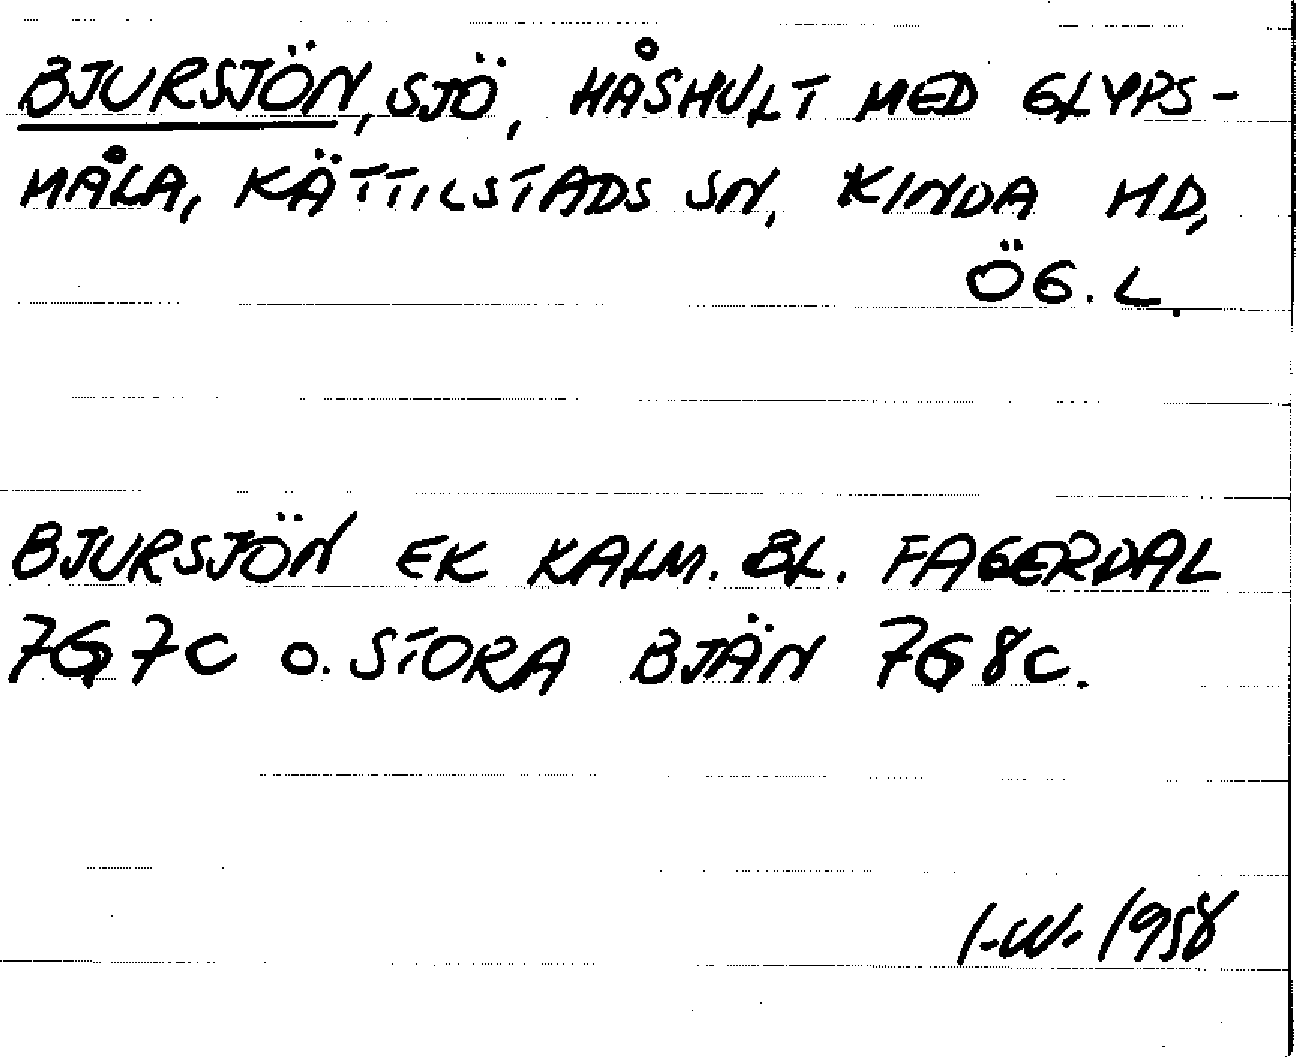 BJURSJÖN, SJÖ, HÅSHULT MED GLYPS-
MÅLA, KÄTTILSTADS SN, KINDA HD,
ÖG. L.
BJURSJÖN EK KALM. BL. FAGERDAL
7G7C O. STORA BJÄN 7G8C.
I.W. 1958